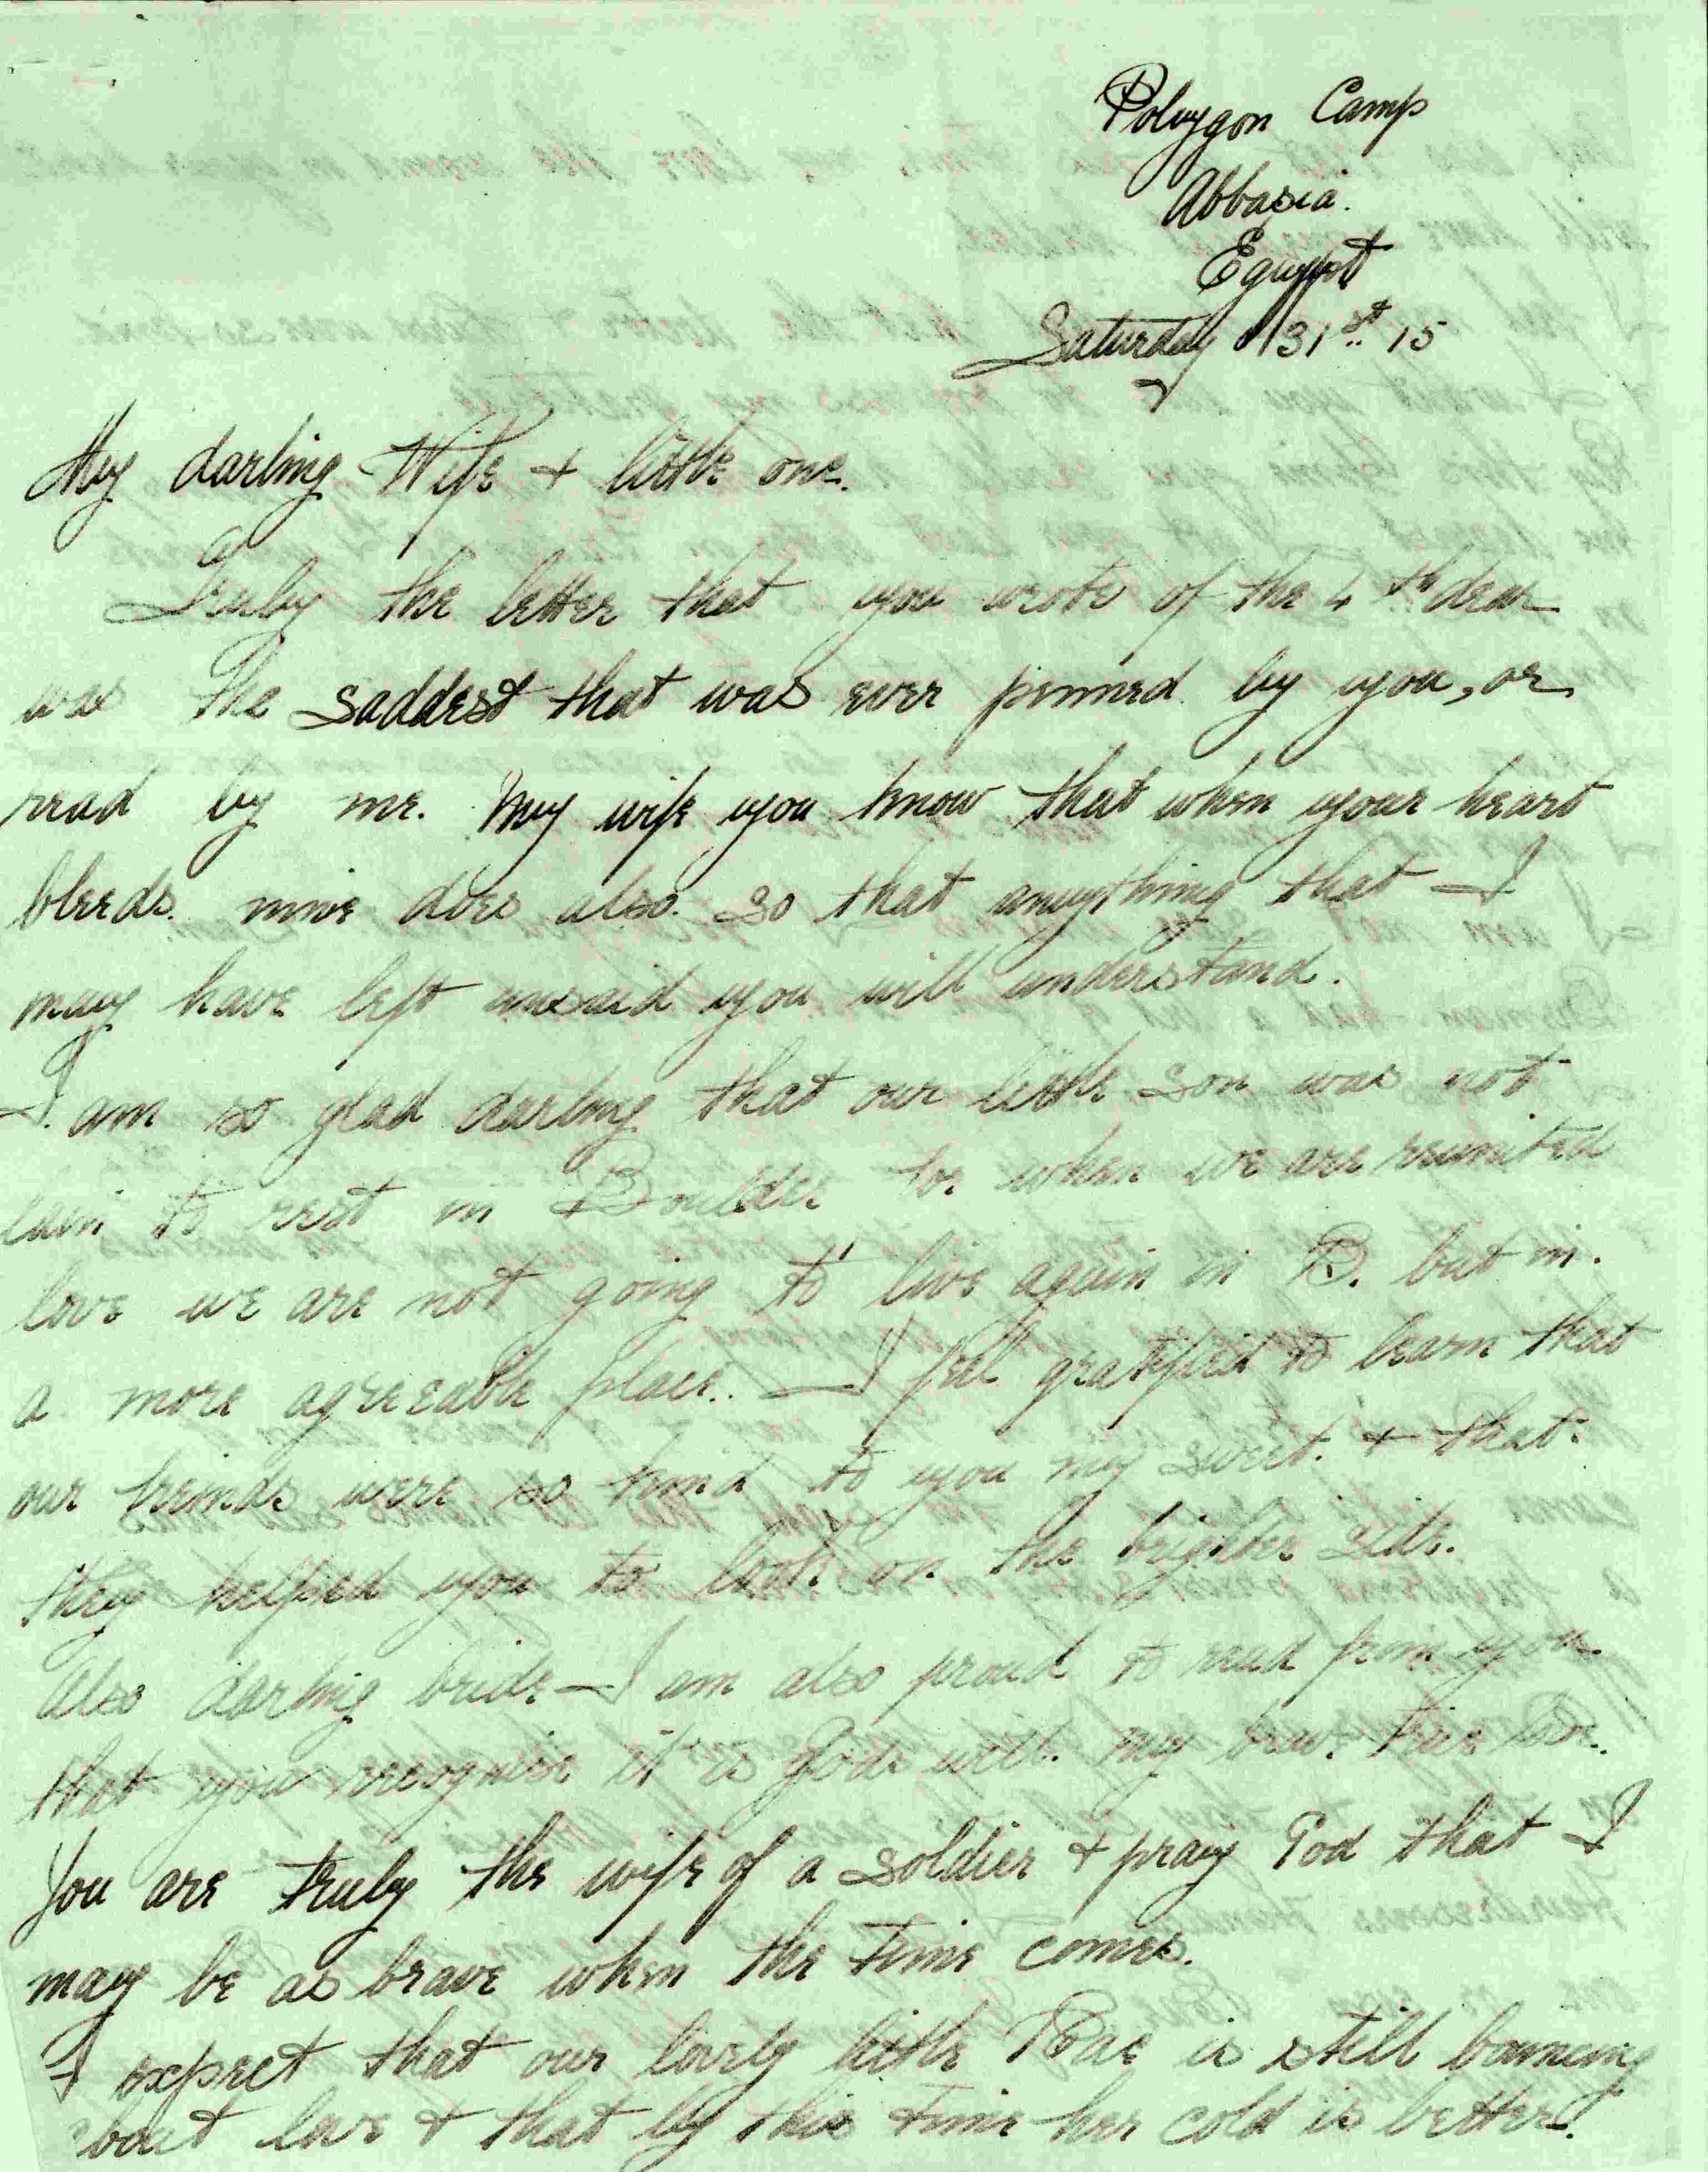 Polygon Camp
Abbasia.
Egypt
Saturday 31st 15
My darling Wife + little one.
Truly the letter that you wrote of the 4th dear
was the saddest that was ever penned by you, or
read by me. My wife you know that when your heart
bleeds. mine does also. so that anything that I
may have left unsaid you will understand.
I am so glad darling that our little son was not
lain to rest in Boulder for when we are reunited
love we are not going to live again in B. but in.
a more agreeable place. I feel gratified to learn that
our freinds were so kind to you my sweet. + that.
they helped you to look on the brighter side.
Also darling bride I am also proud to read from you
that you recognise it is Gods will. my brave true
You are truly the wife of a soldier + pray God that I
may be as brave when the time comes.
I expect that our lovely little Rae is still bouncing
about love + that by this time her cold is better.